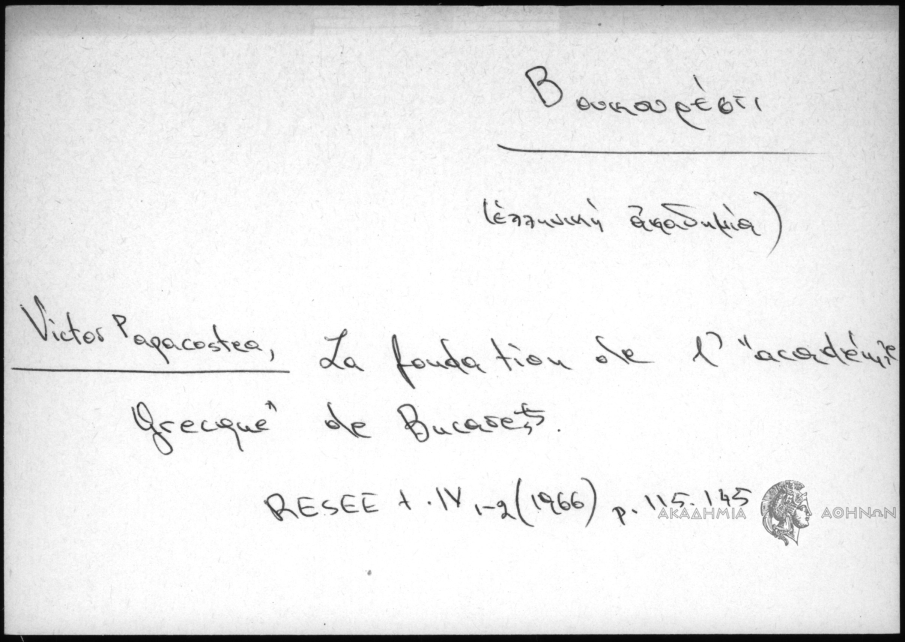 Βουκουρέστι
(ἑλληνική ἀκαδημία)
Victor Papacostea, La fondation de l' "académie
Grecque" de Bucarest.
RESEE t. IV 1-2 (1966) p. 115-145
ΑΚΑΔΗΜΙΑ ΑΘΗΝΩΝ